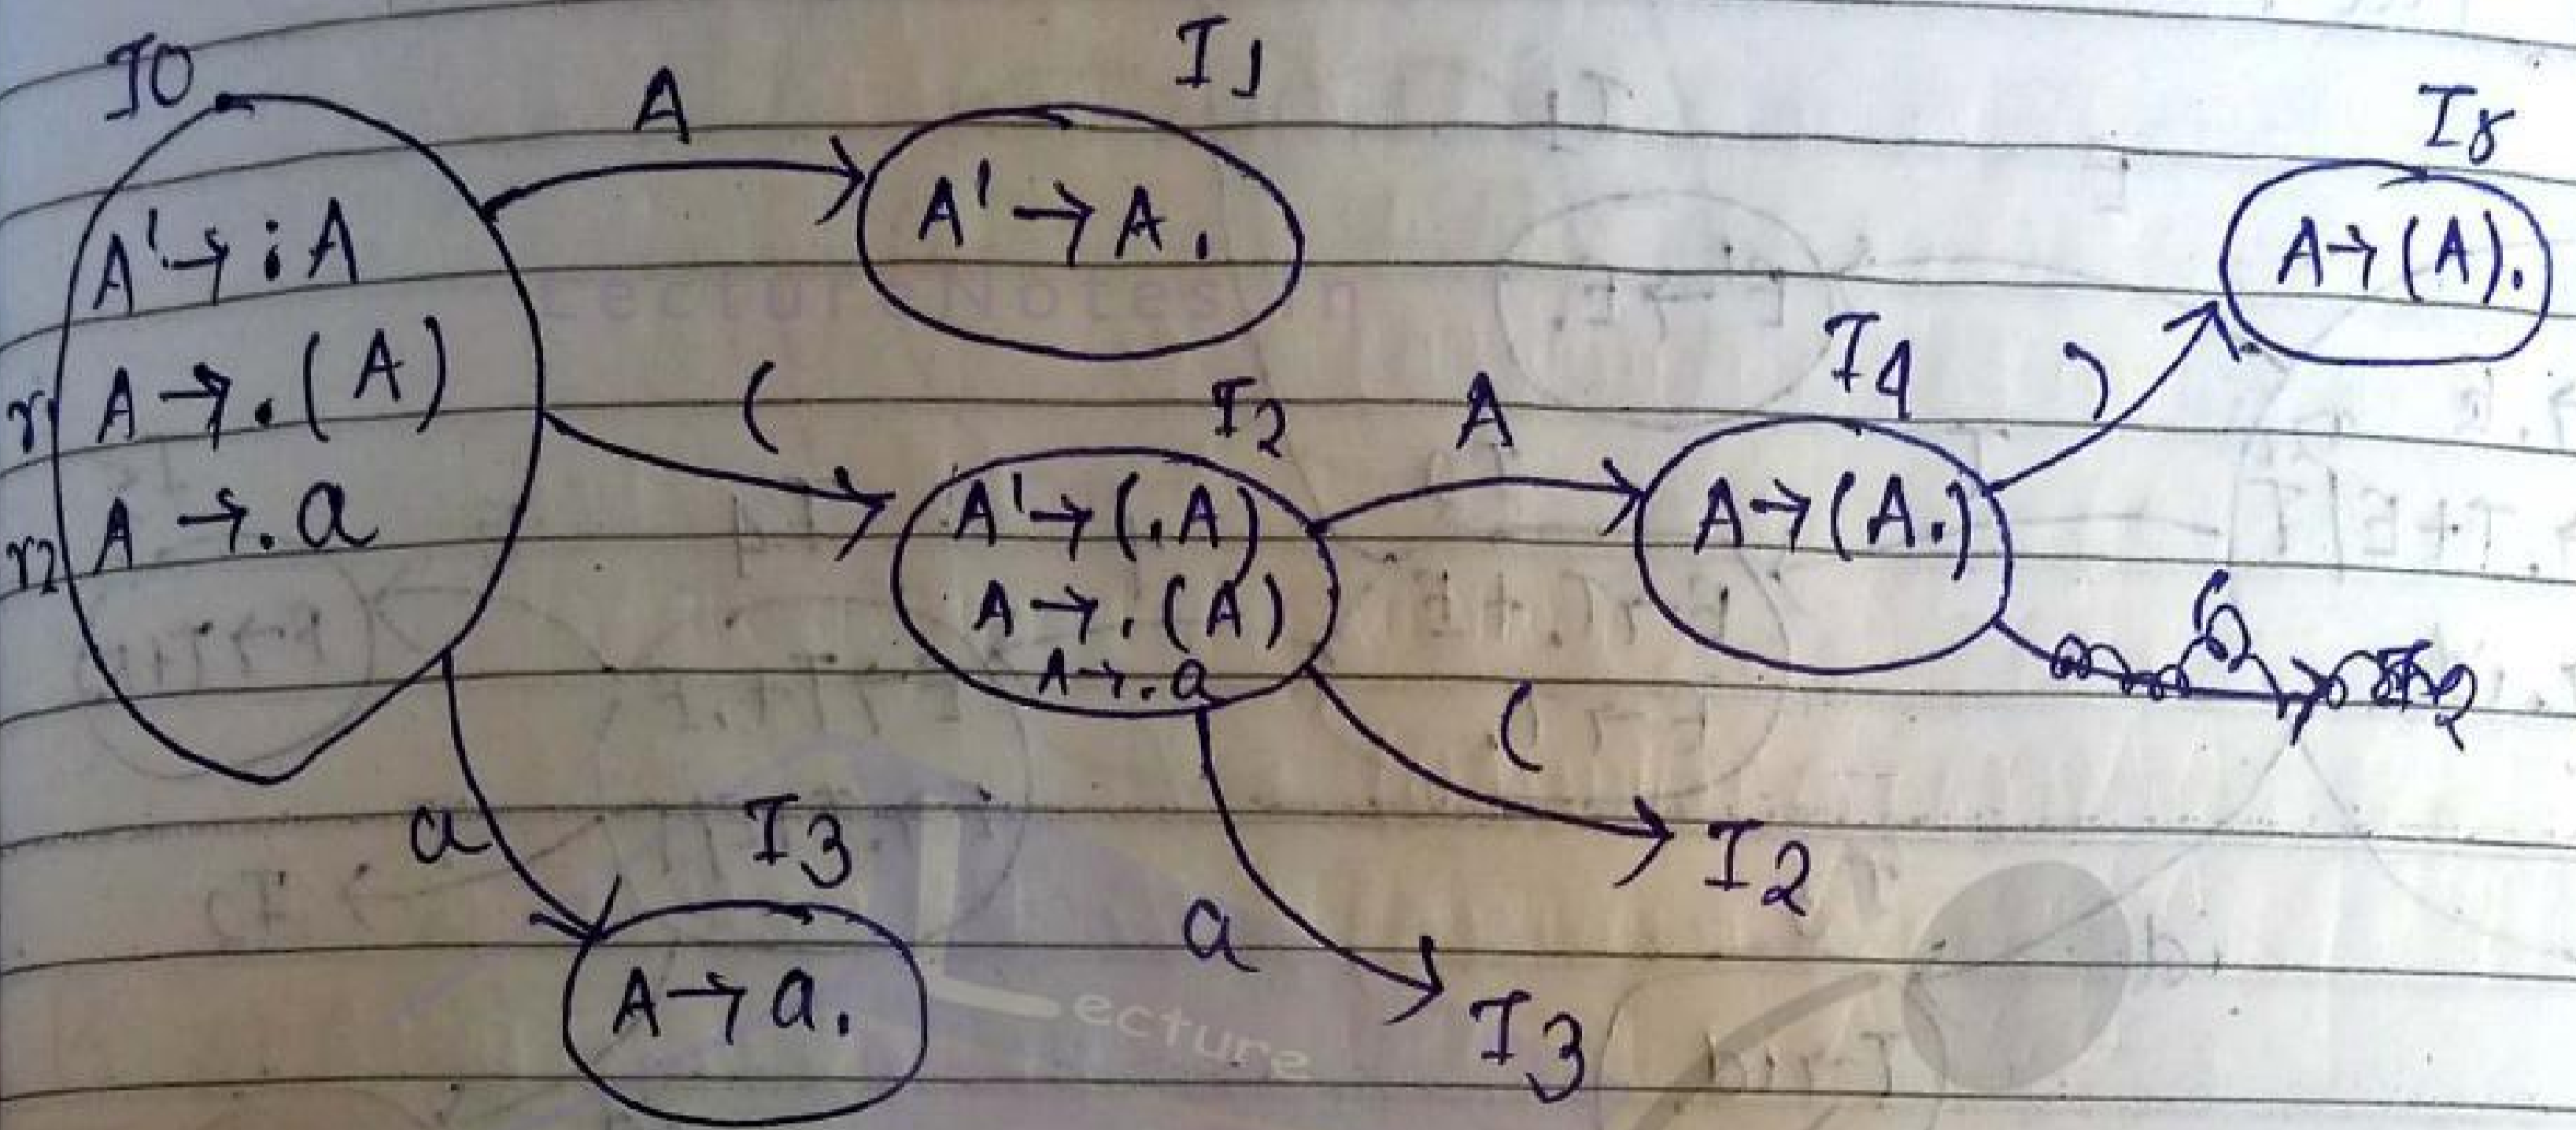 I0
A' → .A
r1 A → .(A)
r2 A → .a
A
I1
A' → A.
(
I2
A' → (.A)
A → .(A)
A → .a
A
I4
A → (A.)
)
I5
A → (A).
(
I2
a
I3
a
I3
A → a.
Lectur Notes n
Lecture